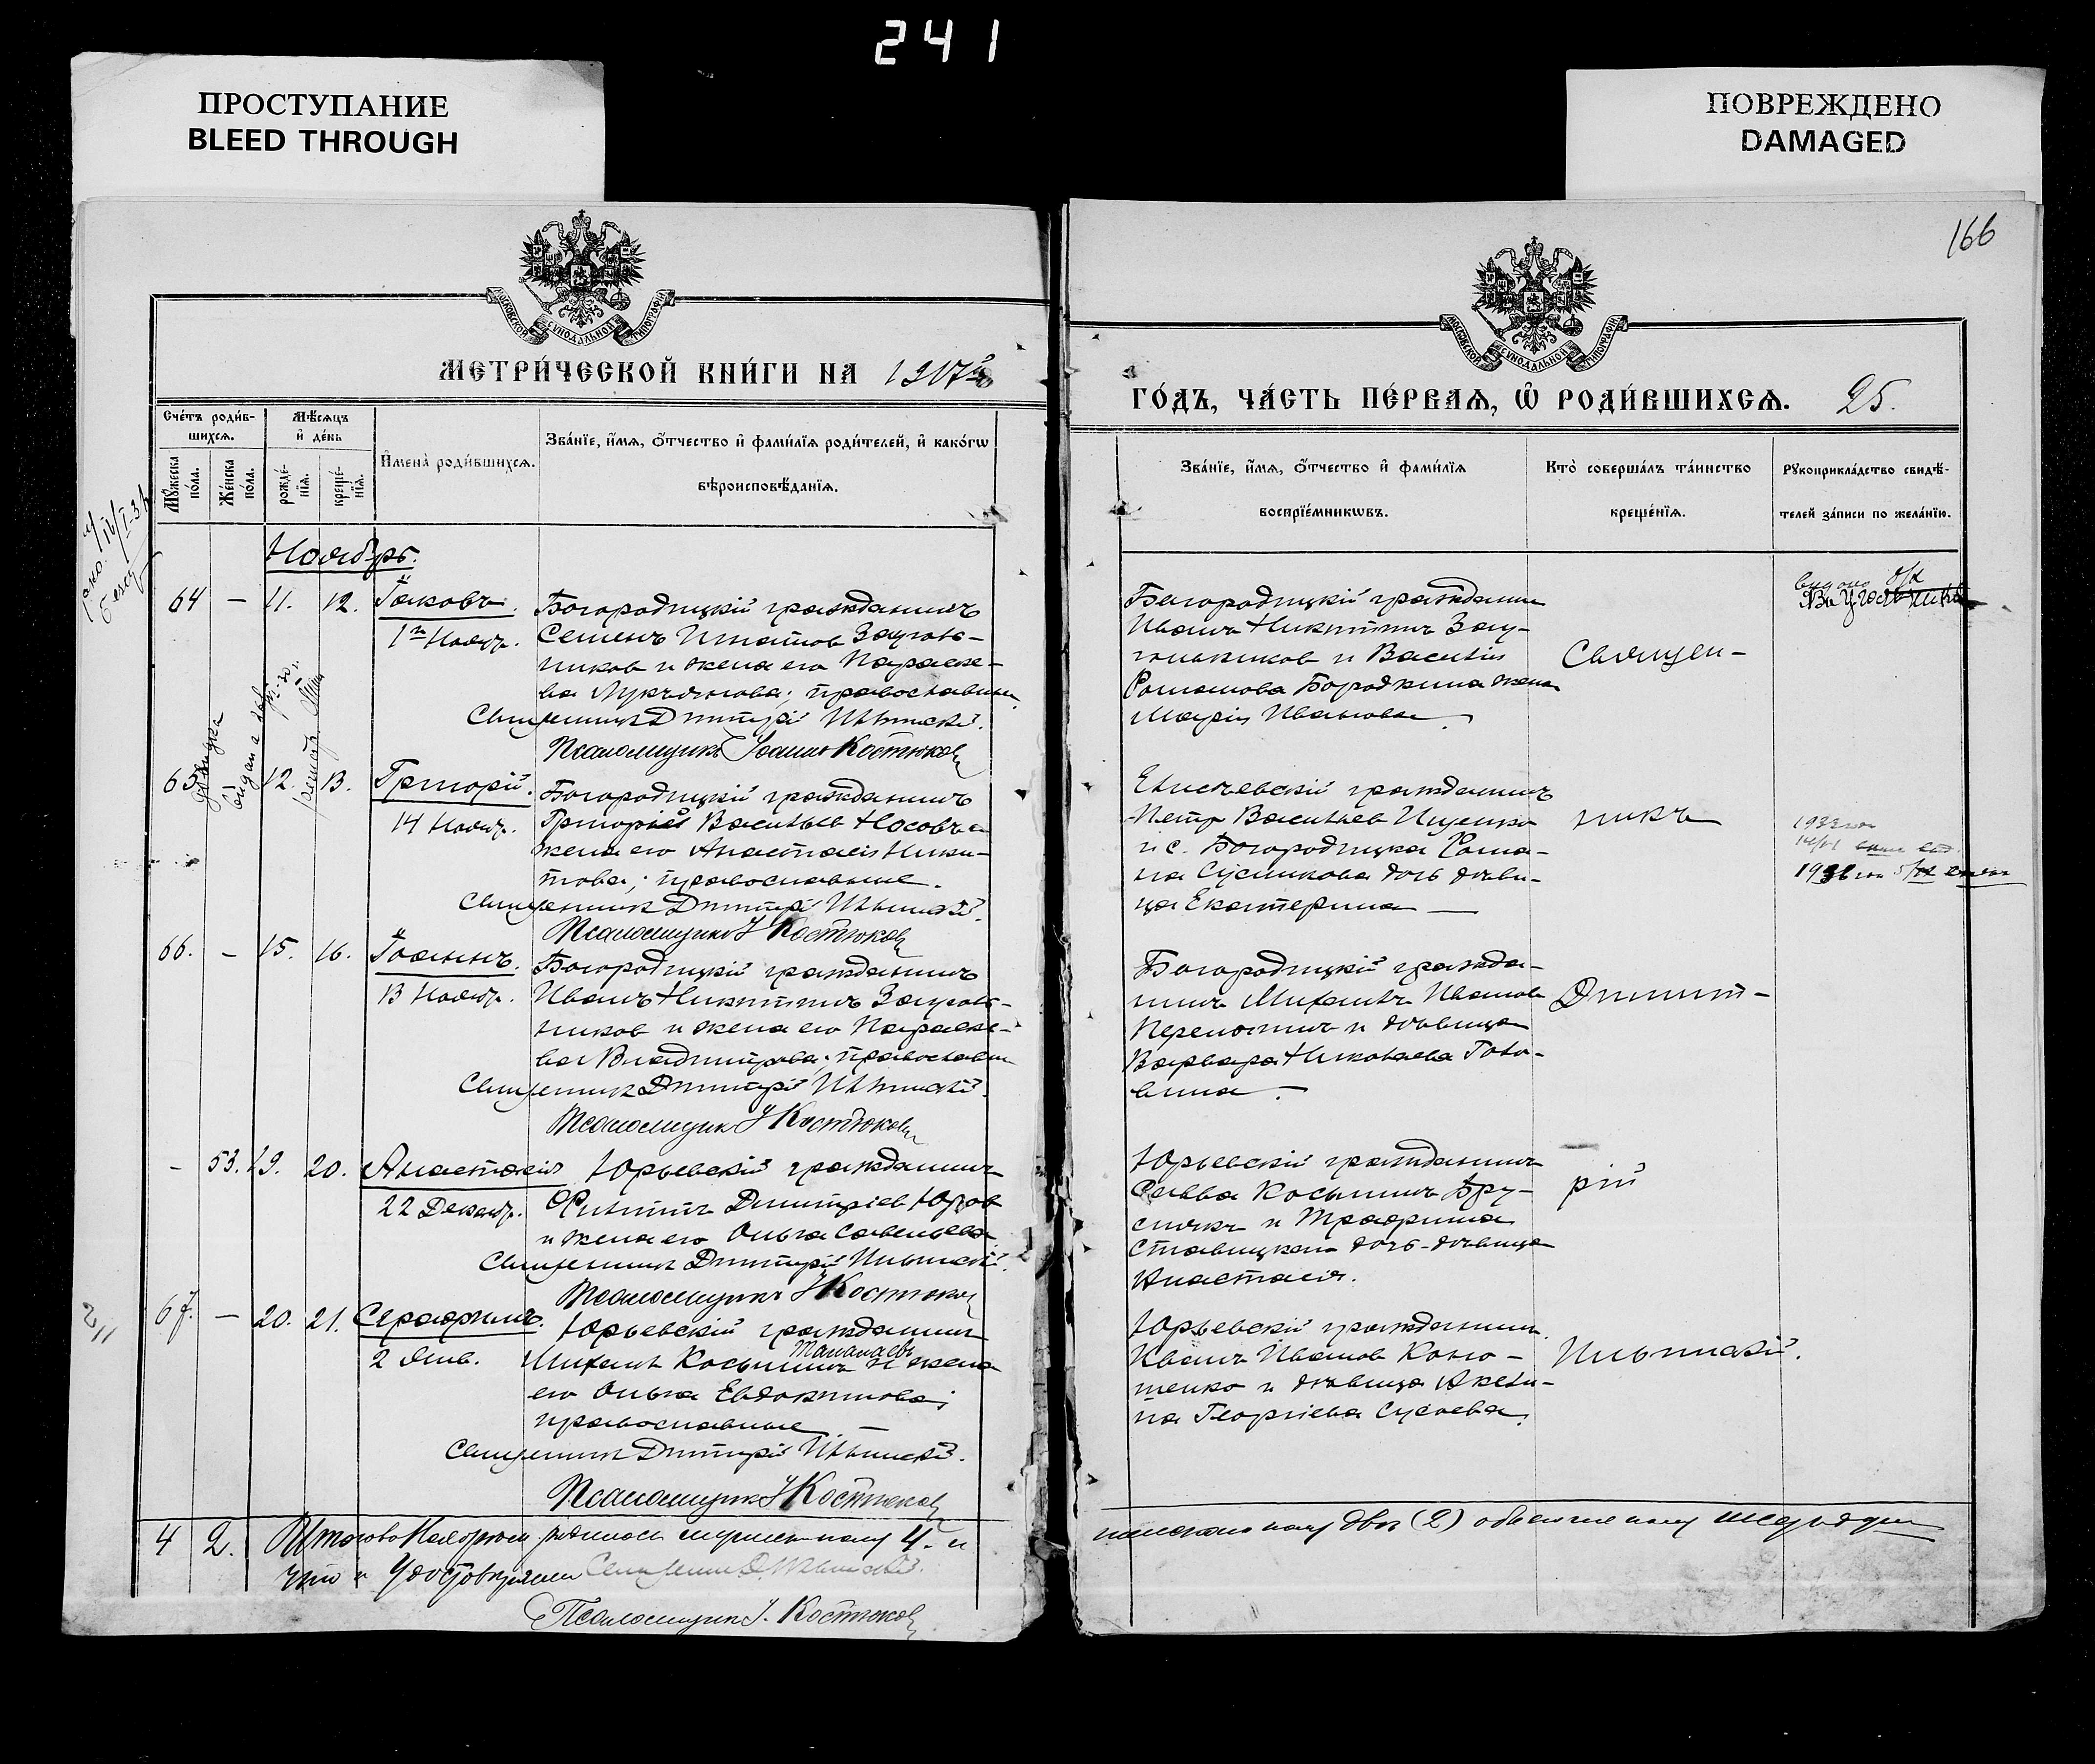 241
ПРОСТУПАНИЕ
BLEED THROUGH
ПОВРЕЖДЕНО
DAMAGED
166
МОСКОВСКОЙ СѴНОДАЛЬНОЙ ТИПОГРАФІИ
МЕТРИ́ЧЕСКОЙ КНИ́ГИ НА 1917й
Сче́тъ роди́в-
шихсѧ.
Мѣсѧцъ
и҆ де́нь
Мꙋ́жеска по́ла.
Же́нска по́ла.
рожде́-
нїѧ.
креще́-
нїѧ.
И҆мена̀ роди́вшихсѧ.
Зва́нїе, и҆́мѧ, ѻ҆́тчество и҆ фами́лїѧ роди́телей, и҆ како́гѡ
вѣроисповѣ́данїѧ.
Ноябрь.
64 — 11. 12. Іаковъ.
1го Ноябр.
Богородицкій гражданинъ
Семенъ Игнатов Загуль-
ников и жена его Параске-
ва Лукьянова; православные
Священник Дмитрій Ильинскій.
Псаломщикъ Іоаннъ Костюков
65 12. 13. Григорій.
14 Ноябр.
Богородицкій гражданинъ
Григорій Васильев Носовъ и
жена его Анастасія Ники-
това; православные.
Священник Дмитрій Ильинскій.
Псаломщик І Костюков
66. — 15. 16. Іоаннъ.
13 Ноябр.
Богородицкій гражданинъ
Иванъ Никитинъ Загуль-
ников и жена его Параске-
ва Владимірова; православн
Священник Дмитрій Ильинскій.
Псаломщик І Костюков
— 53. 19. 20. Анастасія
22 Декабр.
Юрьевскій гражданинъ
Филиппъ Дмитріев Юров
и жена его Ольга Савельева
Священник Дмитрій Ильинскій.
Псаломщикъ І Костюков
67. — 20. 21. Серафимъ.
2 Янв.
Юрьевскій гражданин
Михаилъ Косьминъ Тананаевъ и жена
его Ольга Евдокимова;
православные
Священник Дмитрій Ильинскій.
Псаломщик І Костюков
4 2. Итого в Ноябре родилось мужеск полу 4. и
что и удостоверяем Священ. Д. Ильинскій.
Псаломщик І. Костюков
ГО́ДЪ, ЧА́СТЬ ПЕ́РВАѦ, Ѡ҆ РОДИ́ВШИХСѦ. 25.
Зва́нїе, и҆́мѧ, ѻ҆́тчество и҆ фами́лїѧ
воспрїе́мникѡвъ.
Кто̀ соверша́лъ та́инство
креще́нїѧ.
Рꙋкоприкла́дство свидѣ́-
телей за́писи по жела́нїю.
Богородицкій гражданин
Иванъ Никитинъ Загу-
гольников и Василія
Романова Бородкина жена
Марія Иванова
Священ-
Петръ Васильев Ищенко
и с. Богородицка Рома-
на Сусликова дочь дѣви-
ца Екатерина —
никъ
Богородицкій гражда-
нинъ Михаилъ Иванов
и дѣвица
Варвара Николаева Голо-
вина.
Димит-
Юрьевскій гражданинъ
Савва Косьминъ Бру-
и Трифона
дочь-дѣвица
Анастасія.
рій
Юрьевскій гражданин
Иванъ Иванов Коно-
ненко и дѣвица Акели-
на Георгіева Сусоева.
Ильинскій.
женскаго полу два (2) обоего полу